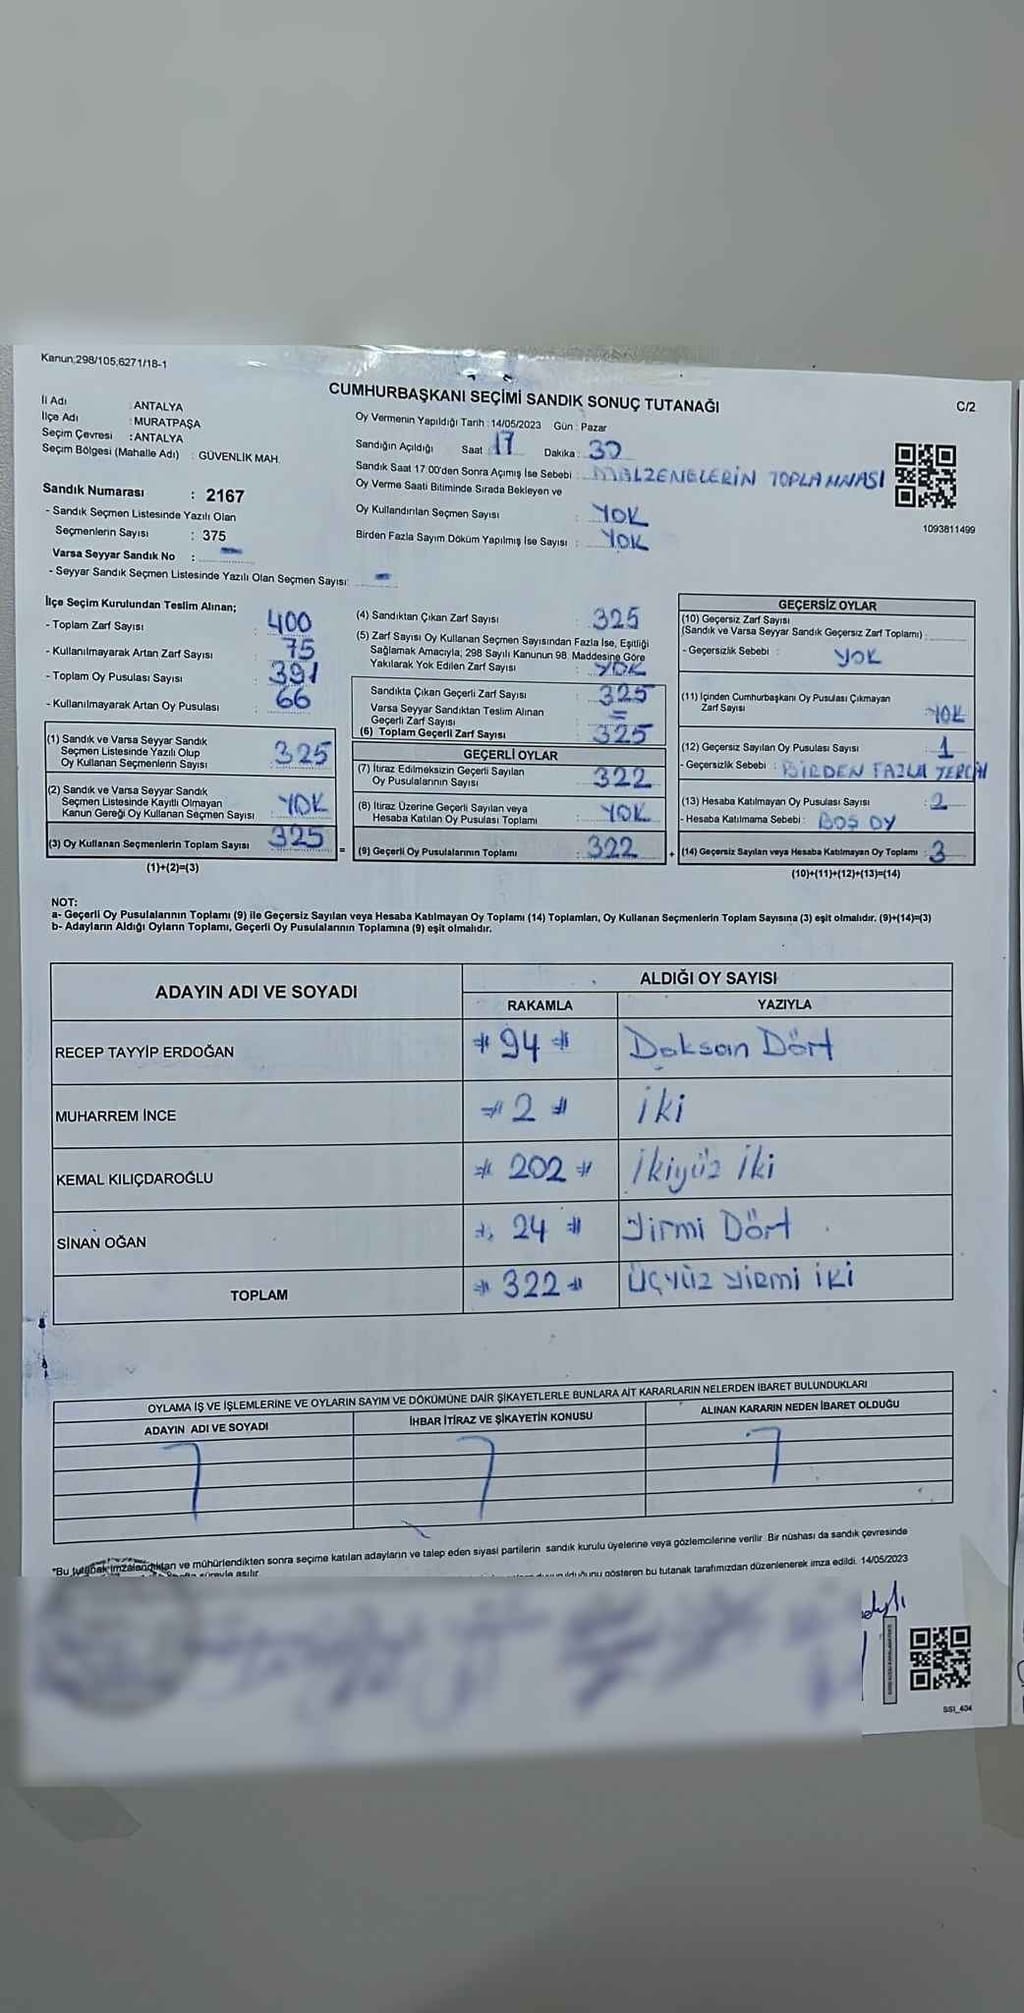 Kanun:298/105,6271/18-1
CUMHURBAŞKANI SEÇİMİ SANDIK SONUÇ TUTANAĞI
C/2
İl Adı : ANTALYA
İlçe Adı : MURATPAŞA
Seçim Çevresi : ANTALYA
Seçim Bölgesi (Mahalle Adı) : GÜVENLİK MAH.
Sandık Numarası : 2167
- Sandık Seçmen Listesinde Yazılı Olan
Seçmenlerin Sayısı : 375
Varsa Seyyar Sandık No : -
- Seyyar Sandık Seçmen Listesinde Yazılı Olan Seçmen Sayısı: -
Oy Vermenin Yapıldığı Tarih : 14/05/2023 Gün : Pazar
Sandığın Açıldığı Saat : 17 Dakika : 30
Sandık Saat 17:00'den Sonra Açımış İse Sebebi : MALZEMELERİN TOPLANMASI
Oy Verme Saati Bitiminde Sırada Bekleyen ve
Oy Kullandırılan Seçmen Sayısı : YOK
Birden Fazla Sayım Döküm Yapılmış İse Sayısı : YOK
1093811499
İlçe Seçim Kurulundan Teslim Alınan;
- Toplam Zarf Sayısı : 400
- Kullanılmayarak Artan Zarf Sayısı : 75
- Toplam Oy Pusulası Sayısı : 391
- Kullanılmayarak Artan Oy Pusulası : 66
(1) Sandık ve Varsa Seyyar Sandık
Seçmen Listesinde Yazılı Olup
Oy Kullanan Seçmenlerin Sayısı : 325
(2) Sandık ve Varsa Seyyar Sandık
Seçmen Listesinde Kayıtlı Olmayan
Kanun Gereği Oy Kullanan Seçmen Sayısı : YOK
(3) Oy Kullanan Seçmenlerin Toplam Sayısı : 325
(1)+(2)=(3)
(4) Sandıktan Çıkan Zarf Sayısı : 325
(5) Zarf Sayısı Oy Kullanan Seçmen Sayısından Fazla İse, Eşitliği
Sağlamak Amacıyla, 298 Sayılı Kanunun 98. Maddesine Göre
Yakılarak Yok Edilen Zarf Sayısı : YOK
Sandıkta Çıkan Geçerli Zarf Sayısı : 325
Varsa Seyyar Sandıktan Teslim Alınan
Geçerli Zarf Sayısı : =
(6) Toplam Geçerli Zarf Sayısı : 325
GEÇERLİ OYLAR
(7) İtiraz Edilmeksizin Geçerli Sayılan
Oy Pusulalarının Sayısı : 322
(8) İtiraz Üzerine Geçerli Sayılan veya
Hesaba Katılan Oy Pusulası Toplamı : YOK
= (9) Geçerli Oy Pusulalarının Toplamı : 322
GEÇERSİZ OYLAR
(10) Geçersiz Zarf Sayısı
(Sandık ve Varsa Seyyar Sandık Geçersiz Zarf Toplamı) :
- Geçersizlik Sebebi : YOK
(11) İçinden Cumhurbaşkanı Oy Pusulası Çıkmayan
Zarf Sayısı : YOK
(12) Geçersiz Sayılan Oy Pusulası Sayısı : 1
- Geçersizlik Sebebi : BİRDEN FAZLA TERCİH
(13) Hesaba Katılmayan Oy Pusulası Sayısı : 2
- Hesaba Katılmama Sebebi : BOŞ OY
+ (14) Geçersiz Sayılan veya Hesaba Katılmayan Oy Toplamı : 3
(10)+(11)+(12)+(13)=(14)
NOT:
a- Geçerli Oy Pusulalarının Toplamı (9) ile Geçersiz Sayılan veya Hesaba Katılmayan Oy Toplamı (14) Toplamları, Oy Kullanan Seçmenlerin Toplam Sayısına (3) eşit olmalıdır. (9)+(14)=(3)
b- Adayların Aldığı Oyların Toplamı, Geçerli Oy Pusulalarının Toplamına (9) eşit olmalıdır.
ADAYIN ADI VE SOYADI ALDIĞI OY SAYISI
RAKAMLA YAZIYLA
RECEP TAYYİP ERDOĞAN # 94 # Doksan Dört
MUHARREM İNCE # 2 # iki
KEMAL KILIÇDAROĞLU # 202 # İkiyüz İki
SİNAN OĞAN # 24 # Yirmi Dört
TOPLAM # 322 # Üçyüz yirmi iki
OYLAMA İŞ VE İŞLEMLERİNE VE OYLARIN SAYIM VE DÖKÜMÜNE DAİR ŞİKAYETLERLE BUNLARA AİT KARARLARIN NELERDEN İBARET BULUNDUKLARI
ADAYIN ADI VE SOYADI İHBAR İTİRAZ VE ŞİKAYETİN KONUSU ALINAN KARARIN NEDEN İBARET OLDUĞU
*Bu tutanak imzalandıktan ve mühürlendikten sonra seçime katılan adayların ve talep eden siyasi partilerin sandık kurulu üyelerine veya gözlemcilerine verilir. Bir nüshası da sandık çevresinde
süreyle asılır. gösteren bu tutanak tarafımızdan düzenlenerek imza edildi. 14/05/2023